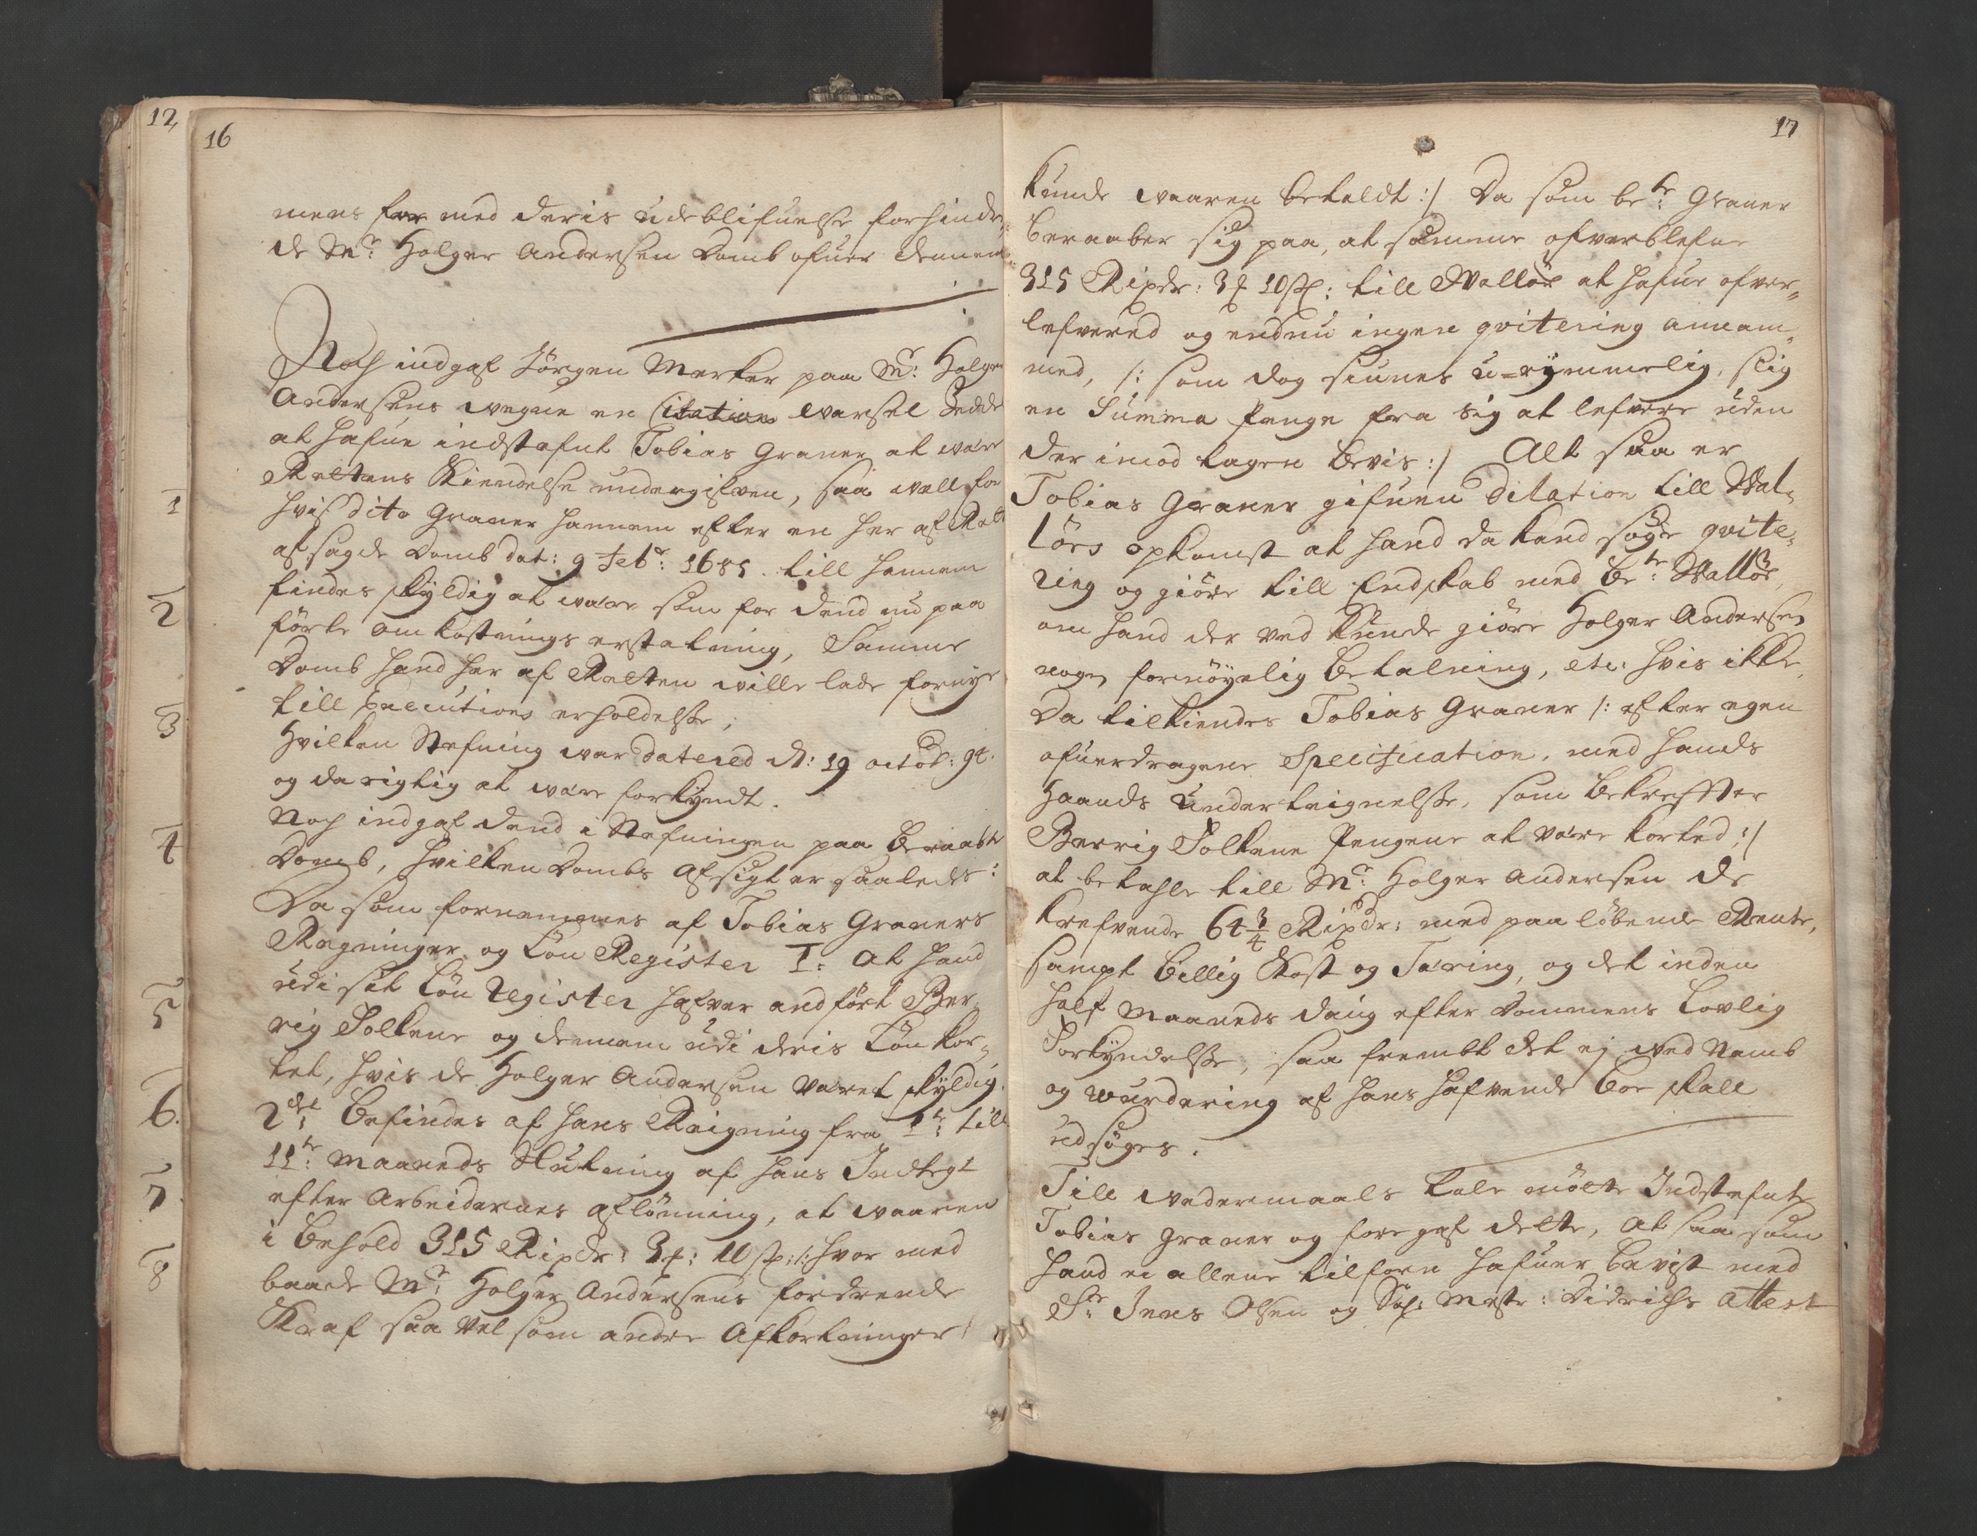 12,
16
mens for med deris udeblifuelse forhinde,,
de Mr: Holger Andersen Domb ofuer dennem
Noch indgaf Jørgen Merker paa Mr: Holger
Andersens wegne en Citation warsel Sedel
at hafue indstefnt Tobias Graner at wære
Rettens Kiendelse undergifven, saa well for
hvis dito Graner hannem efter en her af Rett
afsagde Domb dat: 9 Febr: 1685. till hannem
findes skyldig at wære som for dend nu paa
førte omkostnings erstatning, Samme
Domb hand her af Retten wille lade forny
till Executions erholdelse,
Hvilken Stefning war datered d: 19 octob:
og da rigtig at wære forkyndt.
Noch indgaf dend i Stefningen paa beraabte
Domb, hvilken Dombs afsigt er saaledes:
Da som fornemmes af Tobias Graners
Regninger og Løn Register I: at hand
udi sit Løn Register hafver andført Ber,,
rig Folkene og dennem udi deris Løn kor,,
tet, hvis de Holger Andersen wæret skyldig.
2det: befindes af hans Reigning fra 1te: till
11te: Maaneds Slutning af hans Indtegt
efter Arbeidernes aflønning, at waaren
i behold 315 Ripdr: 3 : 10 : /: hvor med
baade Mr: Holger Andersens fordrende
Kraf saa vel som andre Afkortninger
1
2
3
4
5
6.
7.
8
17
kunde waaren betaldt :/ Da som bete: Graner
beraaber sig paa, at samme ofverblefne
315 Ripdr: 3 10 : till Wallør at hafue ofver,,
lefvered og endnu ingen qvitering annam,,
med, /: som dog siunes u-rymmelig, slig
en Summa Penge fra sig at lefvere uden
der imod tagen bevis :/ Alt saa er
Tobias Graner gifuen Dilation till Wal,,
lørs opkomst at hand da kand søge qvite,,
ring og giøre till Endskab med bete: Wallør,
om hand der ved kunde giøre Holger Andersen
nogen fornøyelig betalning, etc: hvis ikke,
Da tilkiendes Tobias Graner /: efter egen
ofuerdragene Specification, med hands
Haands Underteignelse, som bekreffter
Berrig Folkene Pengene at være korted :/
at betahle till Mr: Holger Andersen de
krefvende 64 3/4 Ripdr: med paaløbende Rente,
sampt billig Kost og Tæring, og det inden
half Maaneds daug efter Dommens Lovlig
Forkyndelse, saa frembt det ej wed Namb
og wurdering af hans hafvende boe skall
udsøges.
Till wedermaals tale møtte Indstefnte
Tobias Graner og foregaf dette, at saa som
hand ei allene tilforn hafuer bevist med
Sr: Jens Olsen og Mestr: Didrichs Attest